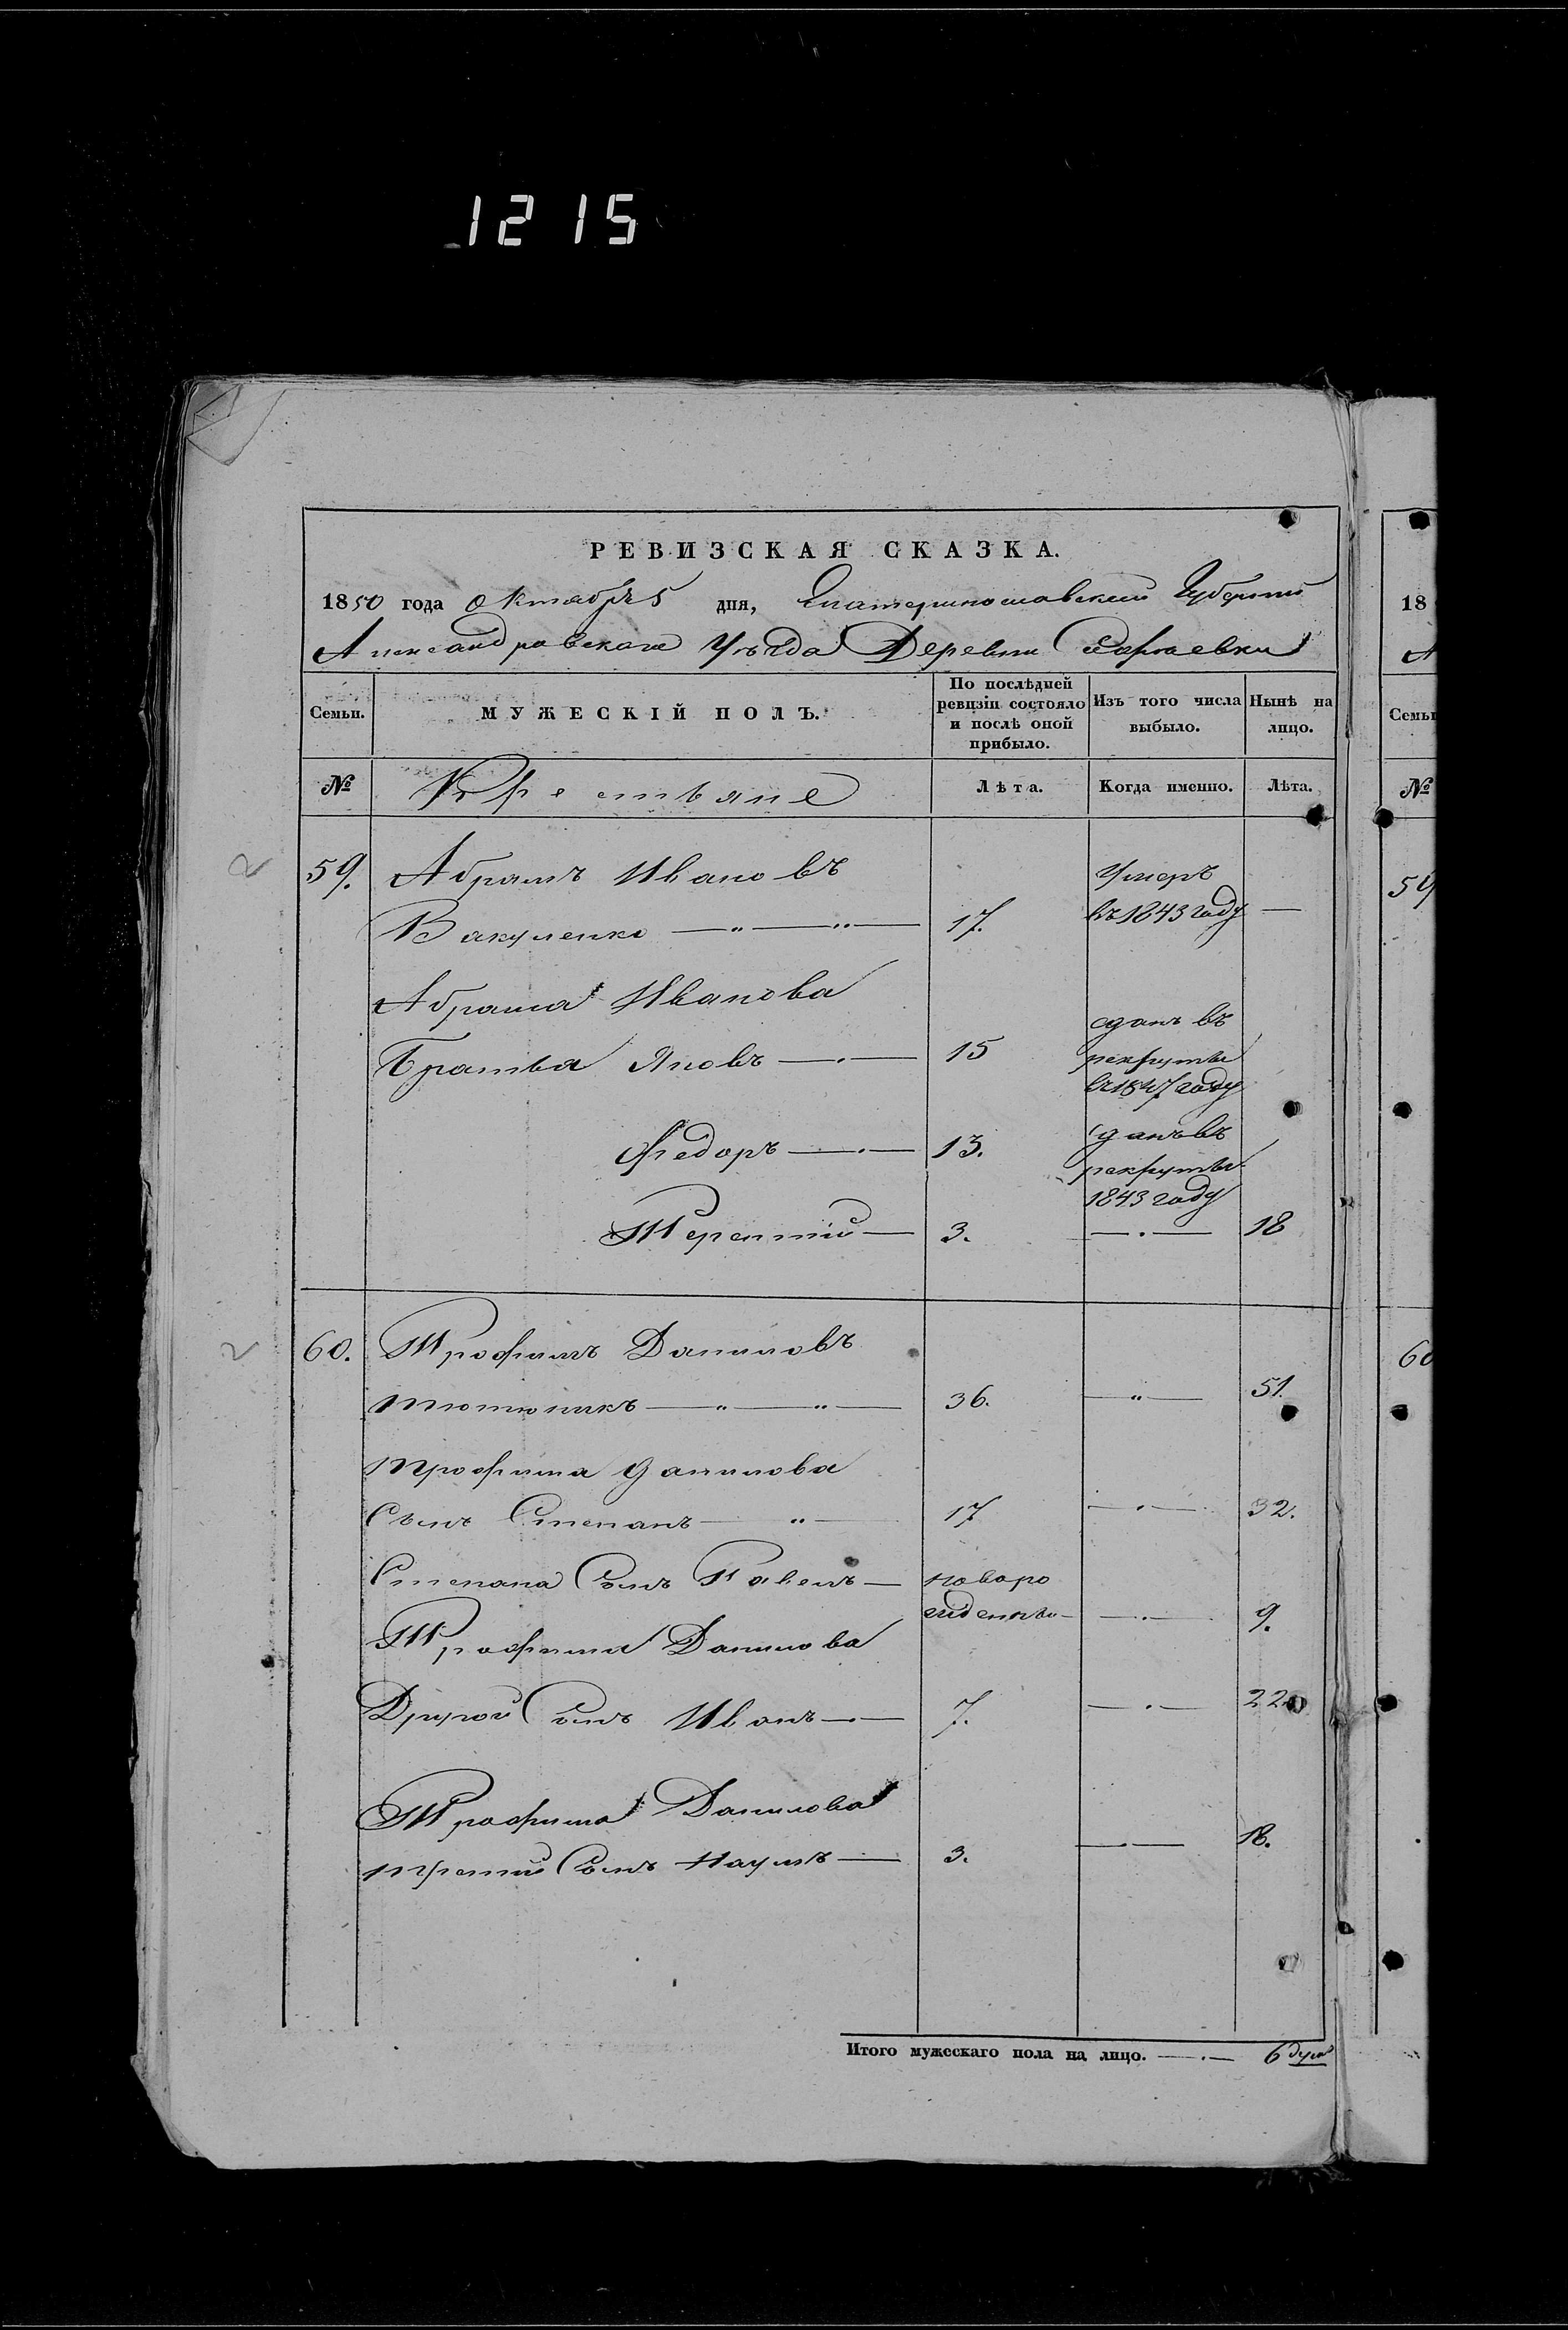 1215
РЕВИЗСКАЯ СКАЗКА.
1850 года Октября 5 дня, Екатеринославской Губернии
Александровскаго Уѣзда Деревни
Семьи. МУЖЕСКІЙ ПОЛЪ. По послѣдней ревизіи состояло и послѣ оной прибыло. Изъ того числа выбыло. Нынѣ на лицо.
№ Крестьяне Лѣта. Когда именно. Лѣта.
59. Абрамъ Ивановъ Умеръ
Вакуленко —〃—〃— 17. въ 1843 году —
Абрама Иванова
сданъ въ
Братья Яковъ —.— 15 рекруты
въ 1847 году
Федоръ —.— 13. сданъ въ
рекруты
1843 году
Терентій — 3. —.— 18
60. Трофимъ Даниловъ
Тютюникъ —〃—〃— 36. —〃— 51.
Трофима Данилова
Сынъ Степанъ —〃— 17 —.— 32.
Степана Сынъ Павелъ — новоро
жденны— —.— 9.
Трофима Данилова
Другой Сынъ Иванъ —.— 7. —.— 22
Трофима Данилова
третій Сынъ Наумъ — 3. —.— 18.
Итого мужескаго пола на лицо. —.— 6 душъ
18
А
Семьи
№
59
60